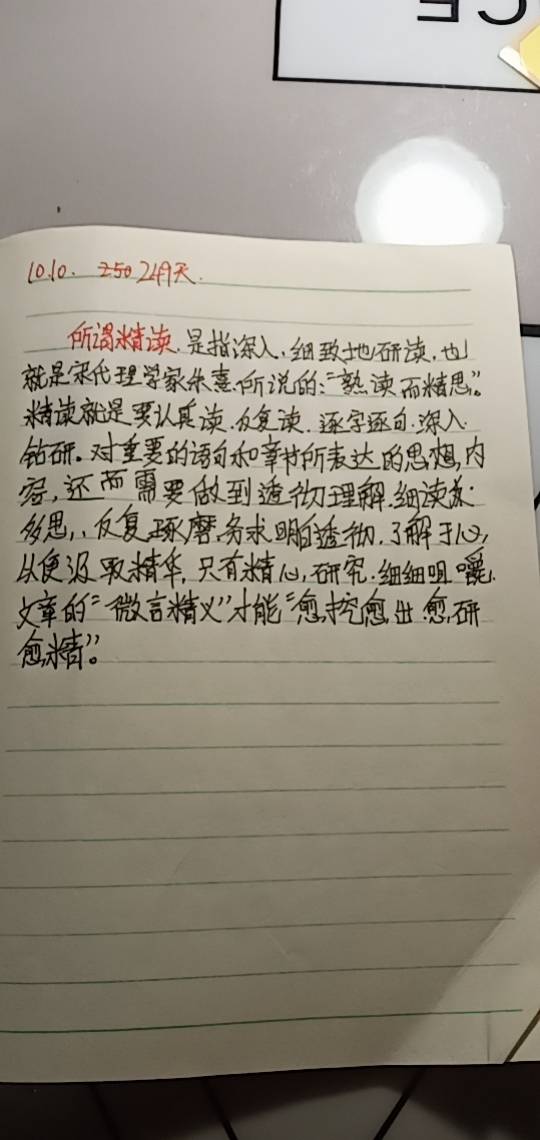 CE
10.10. 250 249天.
所谓精读,是指深入、细致地研读,也
就是宋代理学家朱熹所说的:“熟读而精思”。
精读就是要认真读、反复读、逐字逐句、深入
钻研。对重要的语句和章节所表达的思想,内
容,还而需要做到透彻理解.细读
多思,、反复琢磨,务求明白透彻.了解于心,
以便汲取精华,只有精心,研究.细细咀嚼,
文章的“微言精义”才能“愈挖愈出.愈研
愈精”。